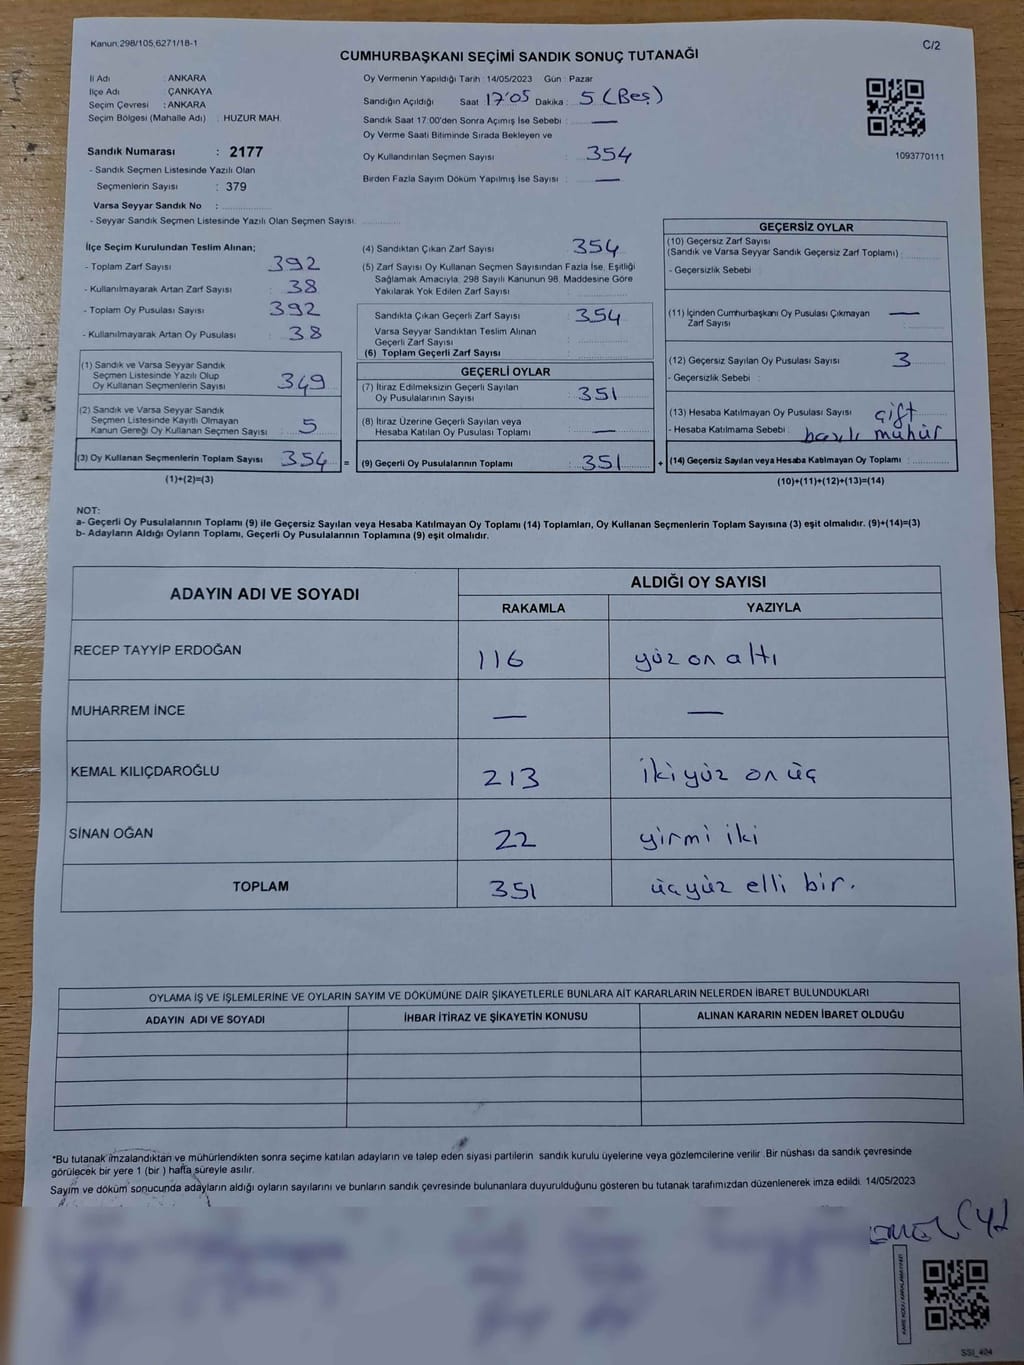 Kanun;298/105,6271/18-1
C/2
CUMHURBAŞKANI SEÇİMİ SANDIK SONUÇ TUTANAĞI
İl Adı : ANKARA
İlçe Adı : ÇANKAYA
Seçim Çevresi : ANKARA
Seçim Bölgesi (Mahalle Adı) : HUZUR MAH.
Sandık Numarası : 2177
- Sandık Seçmen Listesinde Yazılı Olan
Seçmenlerin Sayısı : 379
Varsa Seyyar Sandık No :
- Seyyar Sandık Seçmen Listesinde Yazılı Olan Seçmen Sayısı:
Oy Vermenin Yapıldığı Tarih : 14/05/2023 Gün : Pazar
Sandığın Açıldığı Saat 17:05 Dakika : 5 (Beş)
Sandık Saat 17:00'den Sonra Açımış İse Sebebi : —
Oy Verme Saati Bitiminde Sırada Bekleyen ve
Oy Kullandırılan Seçmen Sayısı : 354
Birden Fazla Sayım Döküm Yapılmış İse Sayısı : —
1093770111
İlçe Seçim Kurulundan Teslim Alınan;
- Toplam Zarf Sayısı : 392
- Kullanılmayarak Artan Zarf Sayısı : 38
- Toplam Oy Pusulası Sayısı : 392
- Kullanılmayarak Artan Oy Pusulası : 38
(1) Sandık ve Varsa Seyyar Sandık
Seçmen Listesinde Yazılı Olup
Oy Kullanan Seçmenlerin Sayısı : 349
(2) Sandık ve Varsa Seyyar Sandık
Seçmen Listesinde Kayıtlı Olmayan
Kanun Gereği Oy Kullanan Seçmen Sayısı : 5
(3) Oy Kullanan Seçmenlerin Toplam Sayısı : 354 =
(1)+(2)=(3)
(4) Sandıktan Çıkan Zarf Sayısı : 354
(5) Zarf Sayısı Oy Kullanan Seçmen Sayısından Fazla İse, Eşitliği
Sağlamak Amacıyla, 298 Sayılı Kanunun 98. Maddesine Göre
Yakılarak Yok Edilen Zarf Sayısı :
Sandıkta Çıkan Geçerli Zarf Sayısı : 354
Varsa Seyyar Sandıktan Teslim Alınan
Geçerli Zarf Sayısı :
(6) Toplam Geçerli Zarf Sayısı :
GEÇERLİ OYLAR
(7) İtiraz Edilmeksizin Geçerli Sayılan
Oy Pusulalarının Sayısı : 351
(8) İtiraz Üzerine Geçerli Sayılan veya
Hesaba Katılan Oy Pusulası Toplamı : —
(9) Geçerli Oy Pusulalarının Toplamı : 351 +
GEÇERSİZ OYLAR
(10) Geçersiz Zarf Sayısı
(Sandık ve Varsa Seyyar Sandık Geçersiz Zarf Toplamı) :
- Geçersizlik Sebebi :
(11) İçinden Cumhurbaşkanı Oy Pusulası Çıkmayan
Zarf Sayısı : —
(12) Geçersiz Sayılan Oy Pusulası Sayısı : 3
- Geçersizlik Sebebi :
(13) Hesaba Katılmayan Oy Pusulası Sayısı : çift
- Hesaba Katılmama Sebebi : baslı mühür
(14) Geçersiz Sayılan veya Hesaba Katılmayan Oy Toplamı :
(10)+(11)+(12)+(13)=(14)
NOT:
a- Geçerli Oy Pusulalarının Toplamı (9) ile Geçersiz Sayılan veya Hesaba Katılmayan Oy Toplamı (14) Toplamları, Oy Kullanan Seçmenlerin Toplam Sayısına (3) eşit olmalıdır. (9)+(14)=(3)
b- Adayların Aldığı Oyların Toplamı, Geçerli Oy Pusulalarının Toplamına (9) eşit olmalıdır.
ADAYIN ADI VE SOYADI
ALDIĞI OY SAYISI
RAKAMLA YAZIYLA
RECEP TAYYİP ERDOĞAN 116 yüz on altı
MUHARREM İNCE — —
KEMAL KILIÇDAROĞLU 213 iki yüz on üç
SİNAN OĞAN 22 yirmi iki
TOPLAM 351 üçyüz elli bir.
OYLAMA İŞ VE İŞLEMLERİNE VE OYLARIN SAYIM VE DÖKÜMÜNE DAİR ŞİKAYETLERLE BUNLARA AİT KARARLARIN NELERDEN İBARET BULUNDUKLARI
ADAYIN ADI VE SOYADI İHBAR İTİRAZ VE ŞİKAYETİN KONUSU ALINAN KARARIN NEDEN İBARET OLDUĞU
*Bu tutanak imzalandıktan ve mühürlendikten sonra seçime katılan adayların ve talep eden siyasi partilerin sandık kurulu üyelerine veya gözlemcilerine verilir. Bir nüshası da sandık çevresinde
görülecek bir yere 1 (bir ) hafta süreyle asılır.
Sayım ve döküm sonucunda adayların aldığı oyların sayılarını ve bunların sandık çevresinde bulunanlara duyurulduğunu gösteren bu tutanak tarafımızdan düzenlenerek imza edildi. 14/05/2023
SSI_404